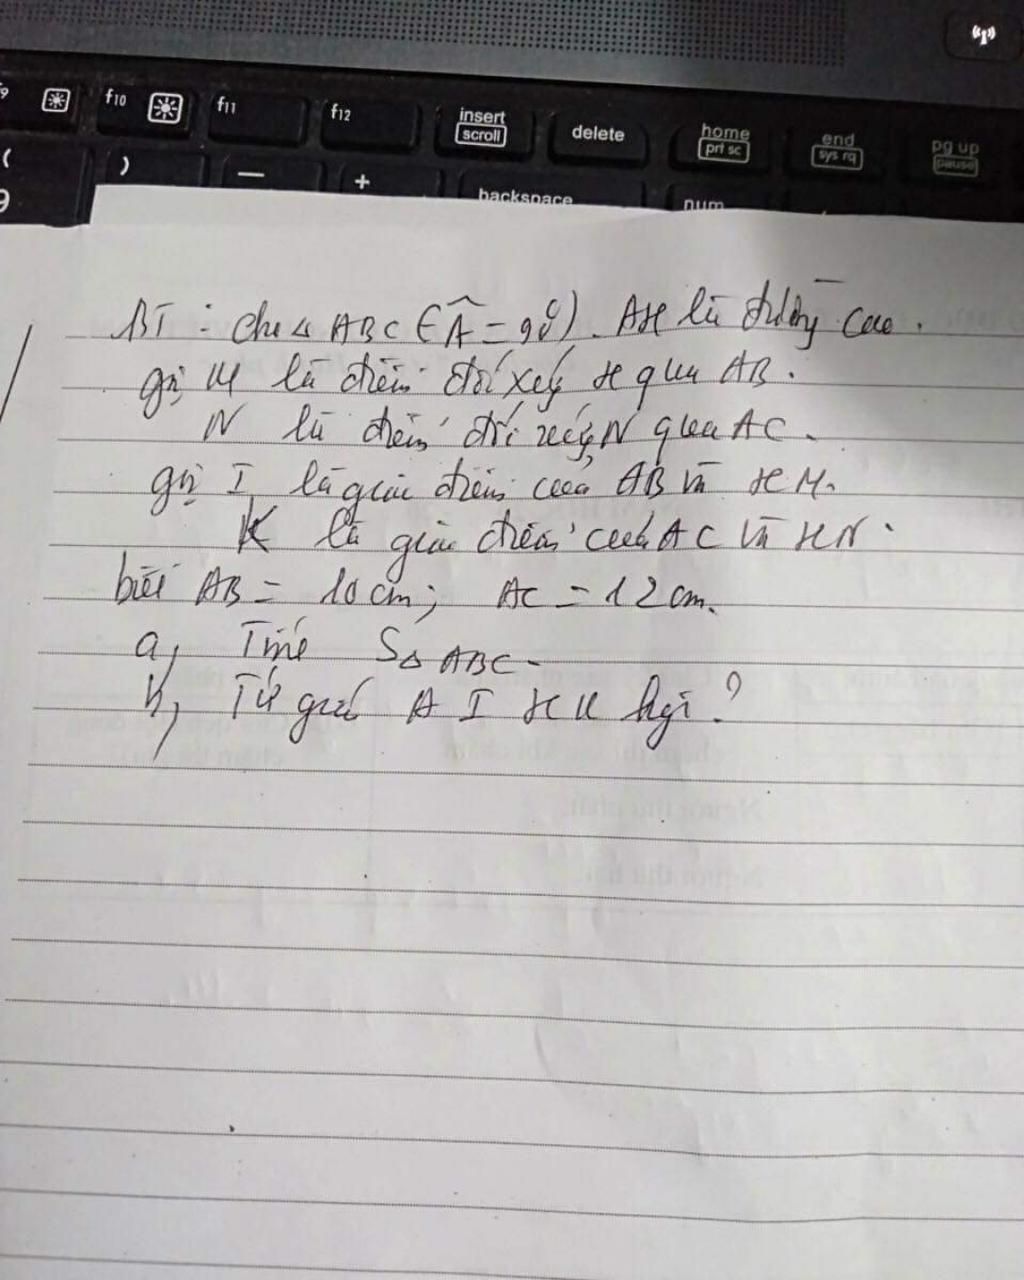 f9 f10 f11 f12 insert scroll delete home prt sc end sys rq pg up pause
( 9 ) — + backspace num
BT : cho △ ABC (Â = 90°). AH là đường cao.
gọi M là điểm đối xứng H qua AB.
N là điểm đối xứng N qua AC.
gọi I là giao điểm của AB và HM.
K là giao điểm của AC và HN.
biết AB = 10 cm; AC = 12 cm.
a, Tính S△ ABC.
b, Tứ giác A I H K hgì?